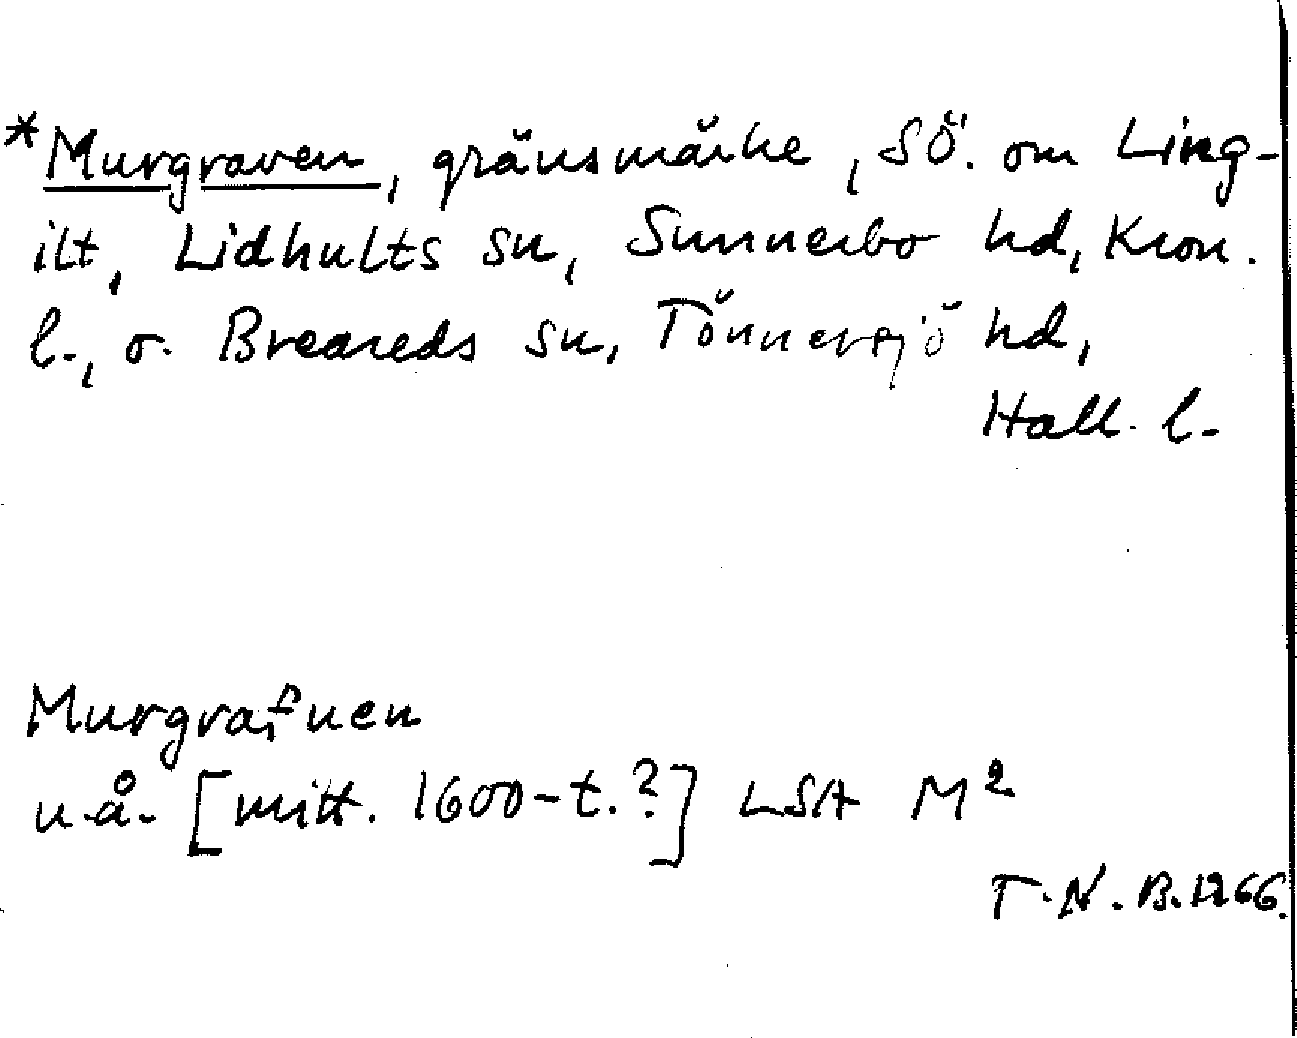 *Murgraven, gränsmärke, SÖ. om Ling-
ilt, Lidhults sn, Sunnerbo hd, Kron.
l., o. Breareds sn, Tönnersjö hd,
Hall. l.
Murgrafuen
u.å. [mitt. 1600-t.?] LSA M²
T.N.B. 1266.